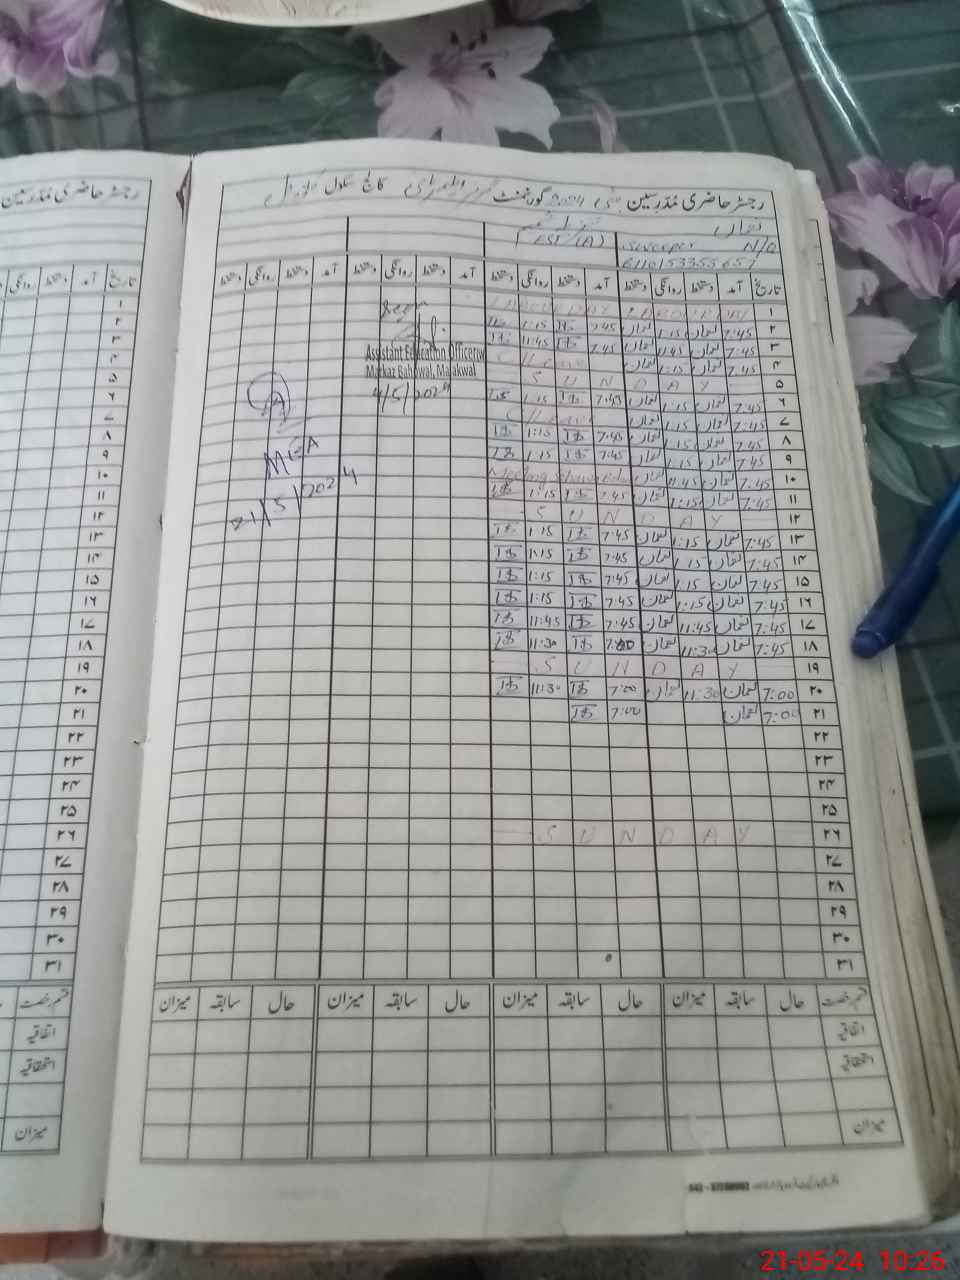 رجسٹر حاضری مُدَرِسین مئی 2024 گورنمنٹ
رجسٹر حاضری مُدَرِسین
EST (A) Sweeper N/Q
تاریخ آمد دستخط روانگی دستخط آمد دستخط روانگی دستخط آمد دستخط روانگی دستخط آمد دستخط روانگی دستخط
۱ LABOUR DAY LABOUR DAY
۲ 7:45 نعمان 1:15 نعمان 7:45 1:15
۳ 7:45 نعمان 11:45 نعمان 7:45 11:45
۴ 7:45 نعمان 1:15 نعمان C/Leave
۵ S U N D A Y
۶ 7:45 نعمان 1:15 نعمان 7:45 1:15
۷ 7:45 نعمان 1:15 نعمان C/Leave
۸ 7:45 نعمان 1:15 نعمان 7:45 1:15
۹ 7:45 نعمان 1:15 نعمان 7:45 1:15
۱۰ 7:45 نعمان 11:45 نعمان Meeting
۱۱ 7:45 نعمان 1:15 نعمان 7:45 1:15
۱۲ S U N D A Y
۱۳ 7:45 نعمان 1:15 نعمان 7:45 1:15
۱۴ 7:45 نعمان 1:15 نعمان 7:45 1:15
۱۵ 7:45 نعمان 1:15 نعمان 7:45 1:15
۱۶ 7:45 نعمان 1:15 نعمان 7:45 1:15
۱۷ 7:45 نعمان 11:45 نعمان 7:45 11:45
۱۸ 7:45 نعمان 11:30 نعمان 7:00 11:30
۱۹ S U N D A Y
۲۰ 7:00 نعمان 11:30 نعمان 7:00 11:30
۲۱ 7:00 نعمان 7:00
۲۲
۲۳
۲۴
۲۵
۲۶ S U N D A Y
۲۷
۲۸
۲۹
۳۰
۳۱
Assistant Education Officer
Markaz Bahowal, Malakwal
4/5/2024
MEA
21/5/2024
قسم رخصت حال سابقہ میزان حال سابقہ میزان حال سابقہ میزان حال سابقہ میزان
اتفاقیہ
استحقاقیہ
میزان
تاریخ آمد دستخط روانگی
۱
۲
۳
۴
۵
۶
۷
۸
۹
۱۰
۱۱
۱۲
۱۳
۱۴
۱۵
۱۶
۱۷
۱۸
۱۹
۲۰
۲۱
۲۲
۲۳
۲۴
۲۵
۲۶
۲۷
۲۸
۲۹
۳۰
۳۱
قسم رخصت
اتفاقیہ
استحقاقیہ
میزان
21-05-24 10:26